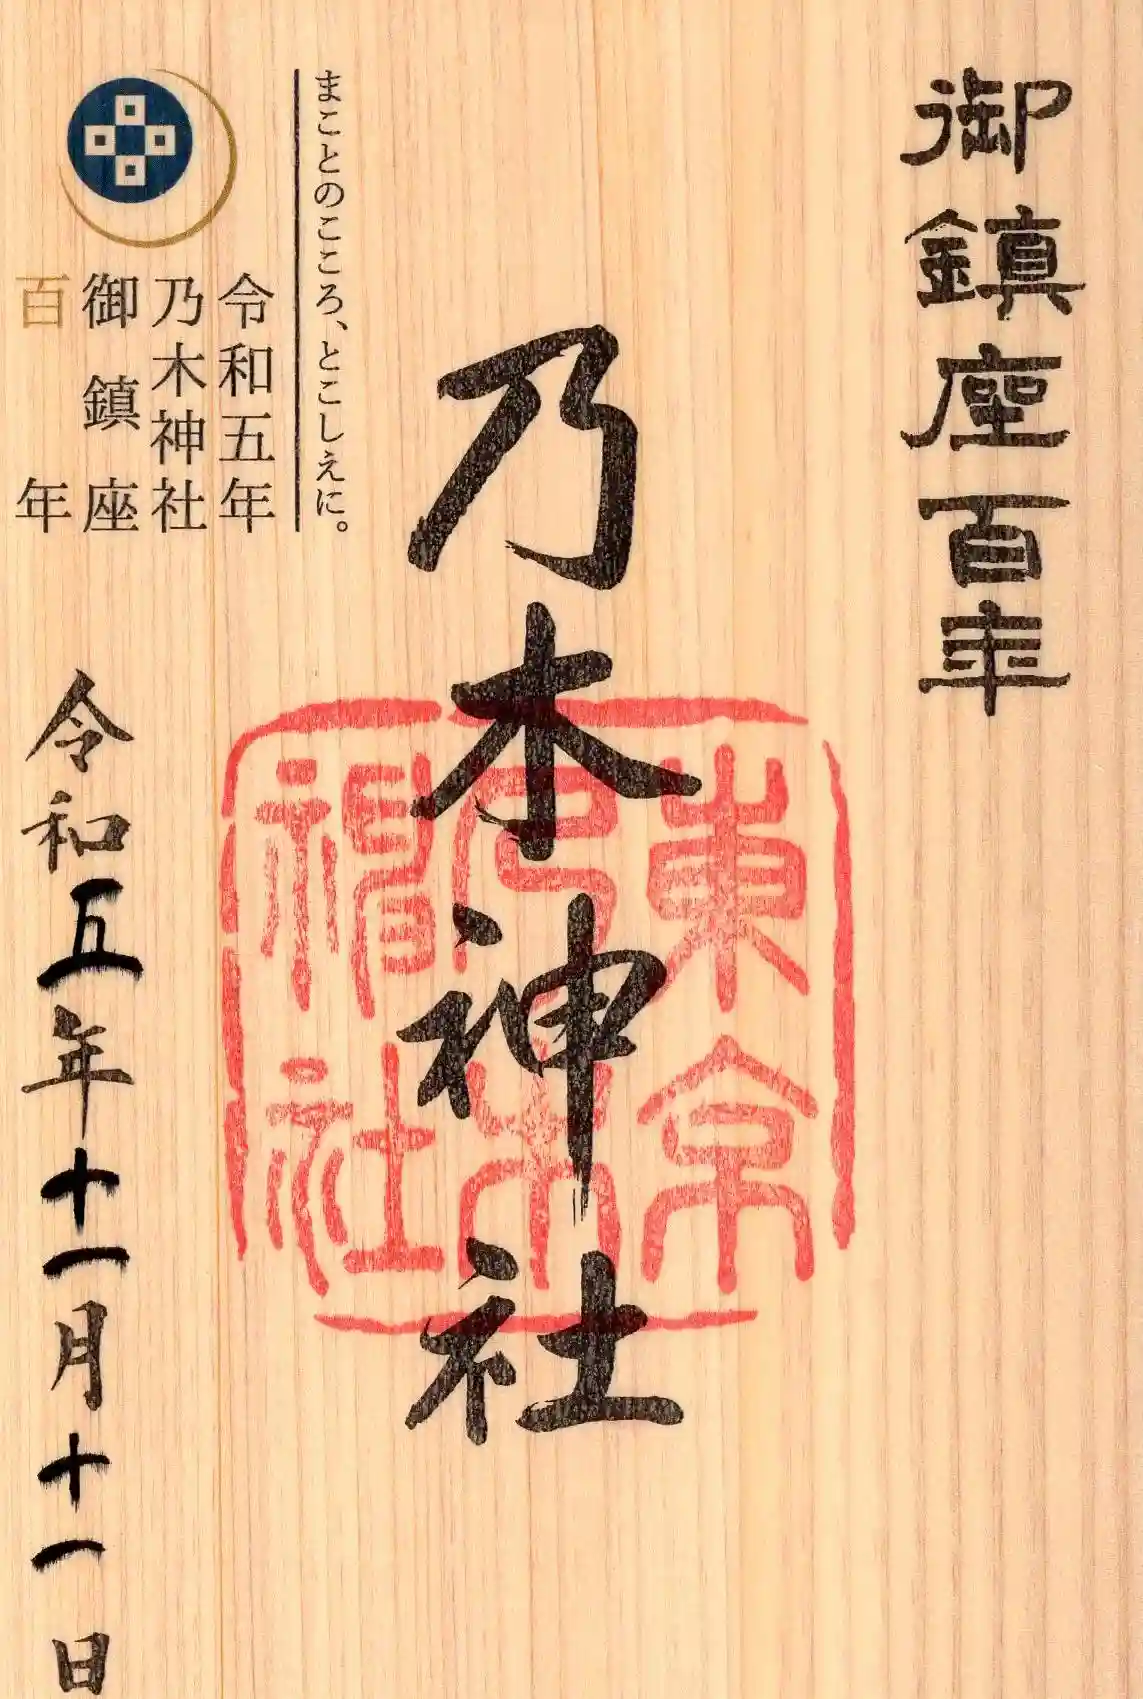 御鎮座百年
乃木神社
東京
乃木
神社
まことのこころ、とこしえに。
令和五年
乃木神社
御鎮座
百年
令和五年十一月十一日